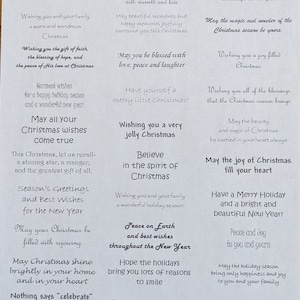 with warmth and love
Wishing you and your family
a warm and wondrous
Christmas
May beautiful moments and
happy memories joyfully
surround you this Christmas
May the magic and wonder of the
Christmas season be yours
Wishing you the gift of faith,
the blessing of hope, and
the peace of His love at Christmas
May you be blessed with
love, peace and laughter
Wishing you a joy filled
Christmas
Warmest wishes
for a happy holiday season
and a wonderful new year
Have yourself a
merry little Christmas!
Wishing you all of the blessings
that the Christmas season brings
May all your
Christmas wishes
come true
Wishing you a very
jolly Christmas
May the beauty
and magic of Christmas
be carried in your heart always
This Christmas, let us recall
a shining star, a manger,
and the greatest gift of all.
Believe
in the spirit
of Christmas
May the joy of Christmas
fill your heart
Season's Greetings
and Best Wishes
for the New Year
Wishing you and your family
a wonderful holiday season
Have a Merry Holiday
and a bright and
beautiful New Year!
May your Christmas be
filled with rejoicing
Peace on Earth
and best wishes
throughout the New Year
Peace and Joy
to you and yours
May Christmas shine
brightly in your home
and in your heart
Hope the holidays
bring you lots of reasons
to smile
May the holiday season
bring only happiness and joy
to you and your family
Nothing says "celebrate"